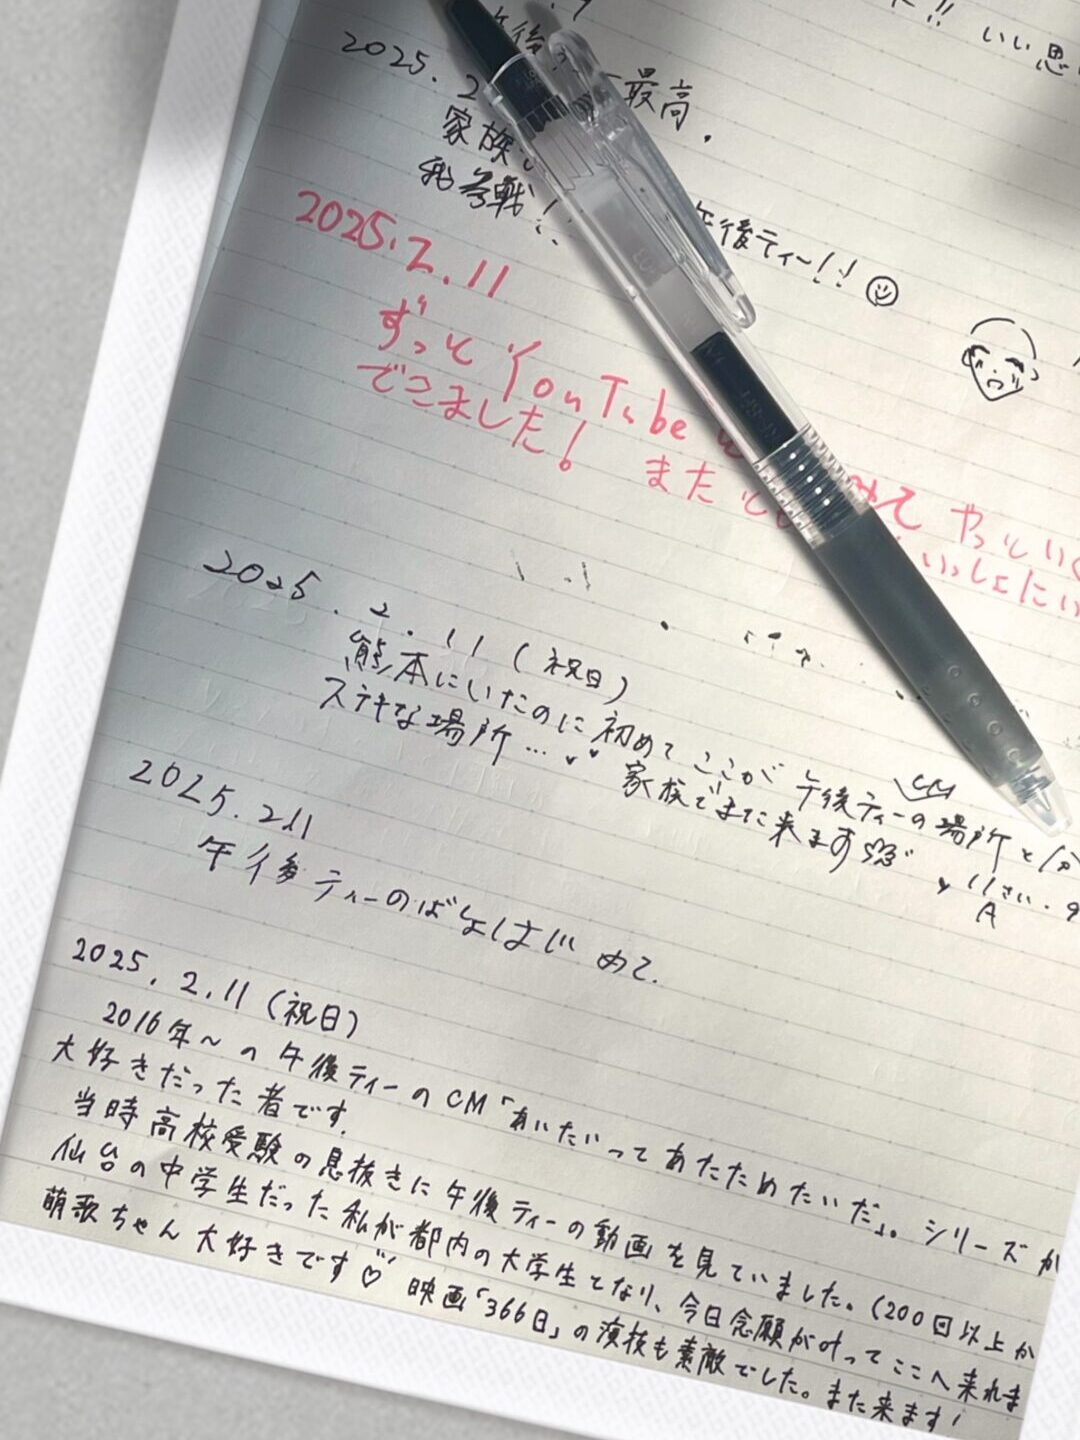 いい思
2025.2
最高.
家族
参戦!!
午後ティー!!
2025.2.11
ずっと YouTube
みて やっと
でこました! また
いっしょに
2025.2.11 (祝日)
熊本にいたのに初めてここが午後ティーのCMの場所と
ステキな場所... 家族でまた来ます
2025.2.11
午後ティーのばしょはじめて.
2025.2.11 (祝日)
2016年〜の午後ティーのCM「あいたいってあたためたいだ」。シリーズが
大好きだった者です.
当時高校受験の息抜きに午後ティーの動画を見ていました。(200回以上か
仙台の中学生だった私が都内の大学生となり、今日念願が叶ってここへ来れま
萌歌ちゃん大好きです♡ 映画「366日」の演技も素敵でした。また来ます!